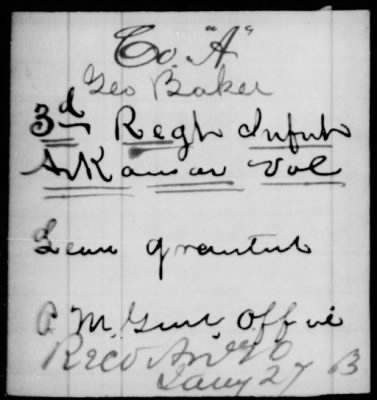 Co. "A"
Geo Baker
3d Regt Infnt
Arkansas Vol
Leave granted
P. M. Genl Office
Recd
Jany 27